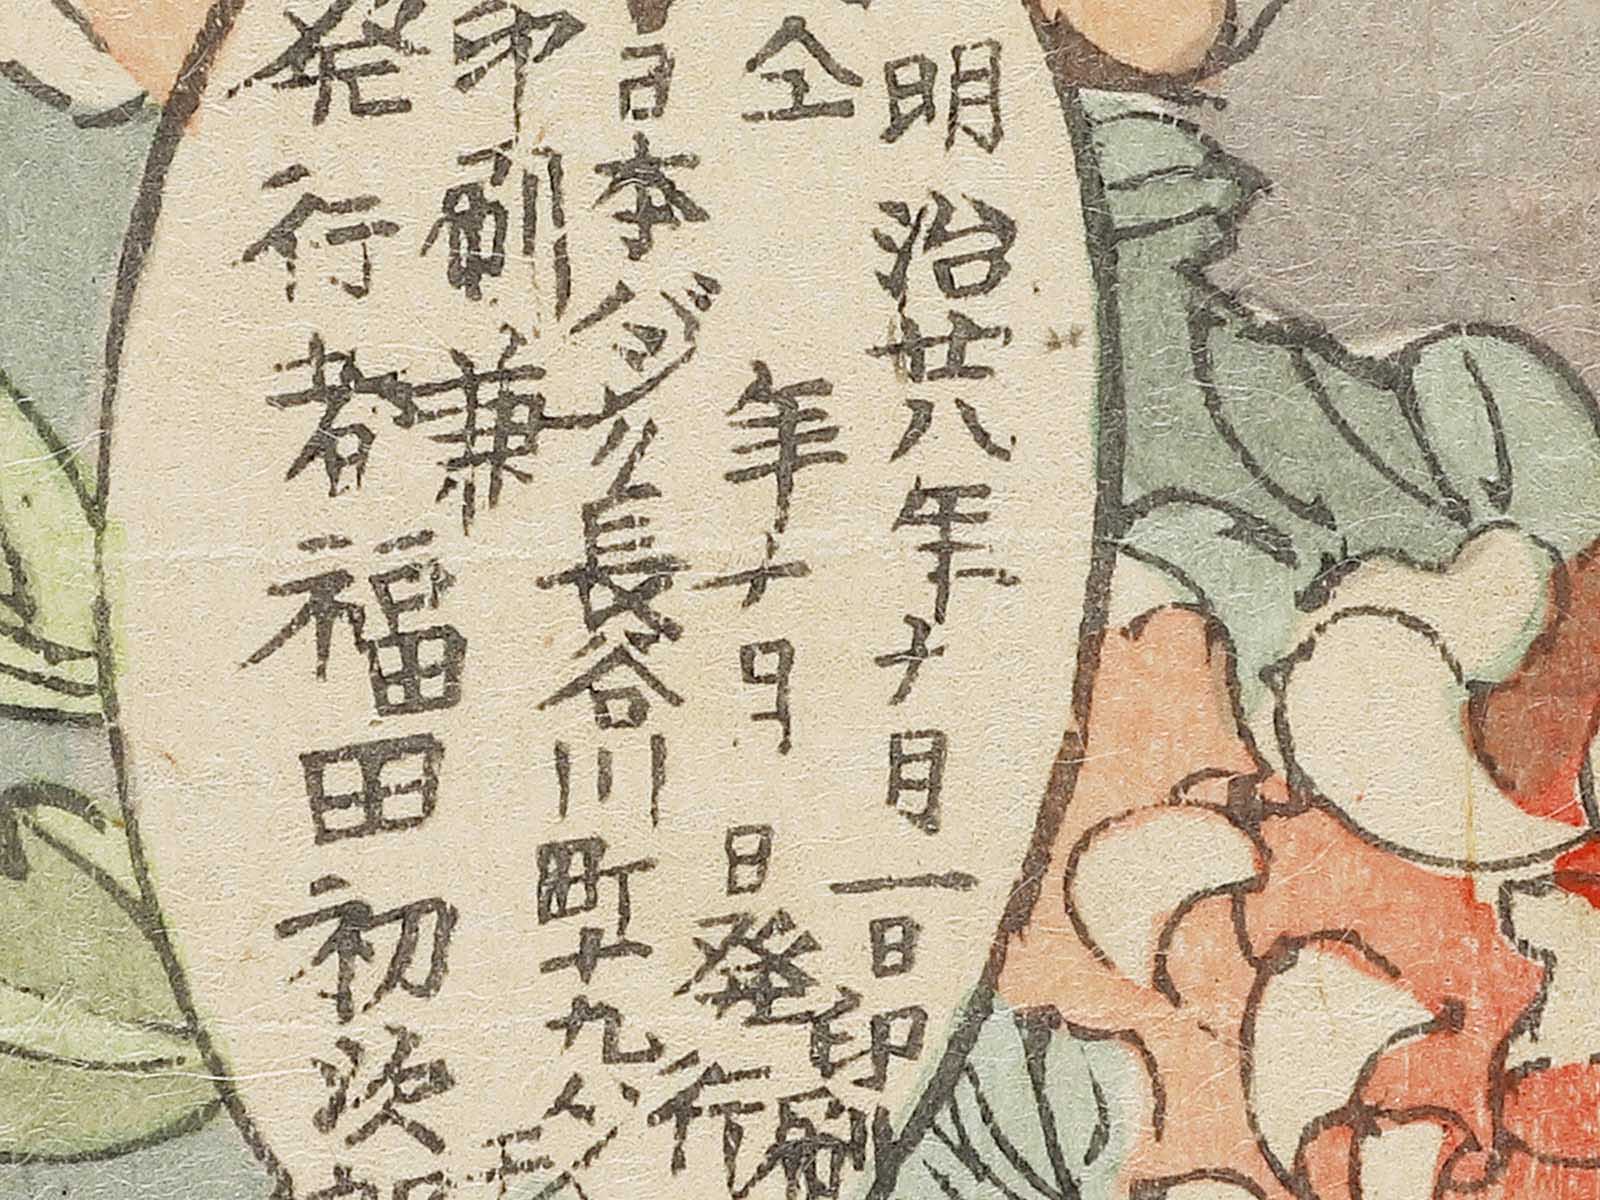 明治廿八年十月一日印刷
仝年十月日発行
日本バシク長谷川町十九バン
印刷兼
発行者福田初次郎